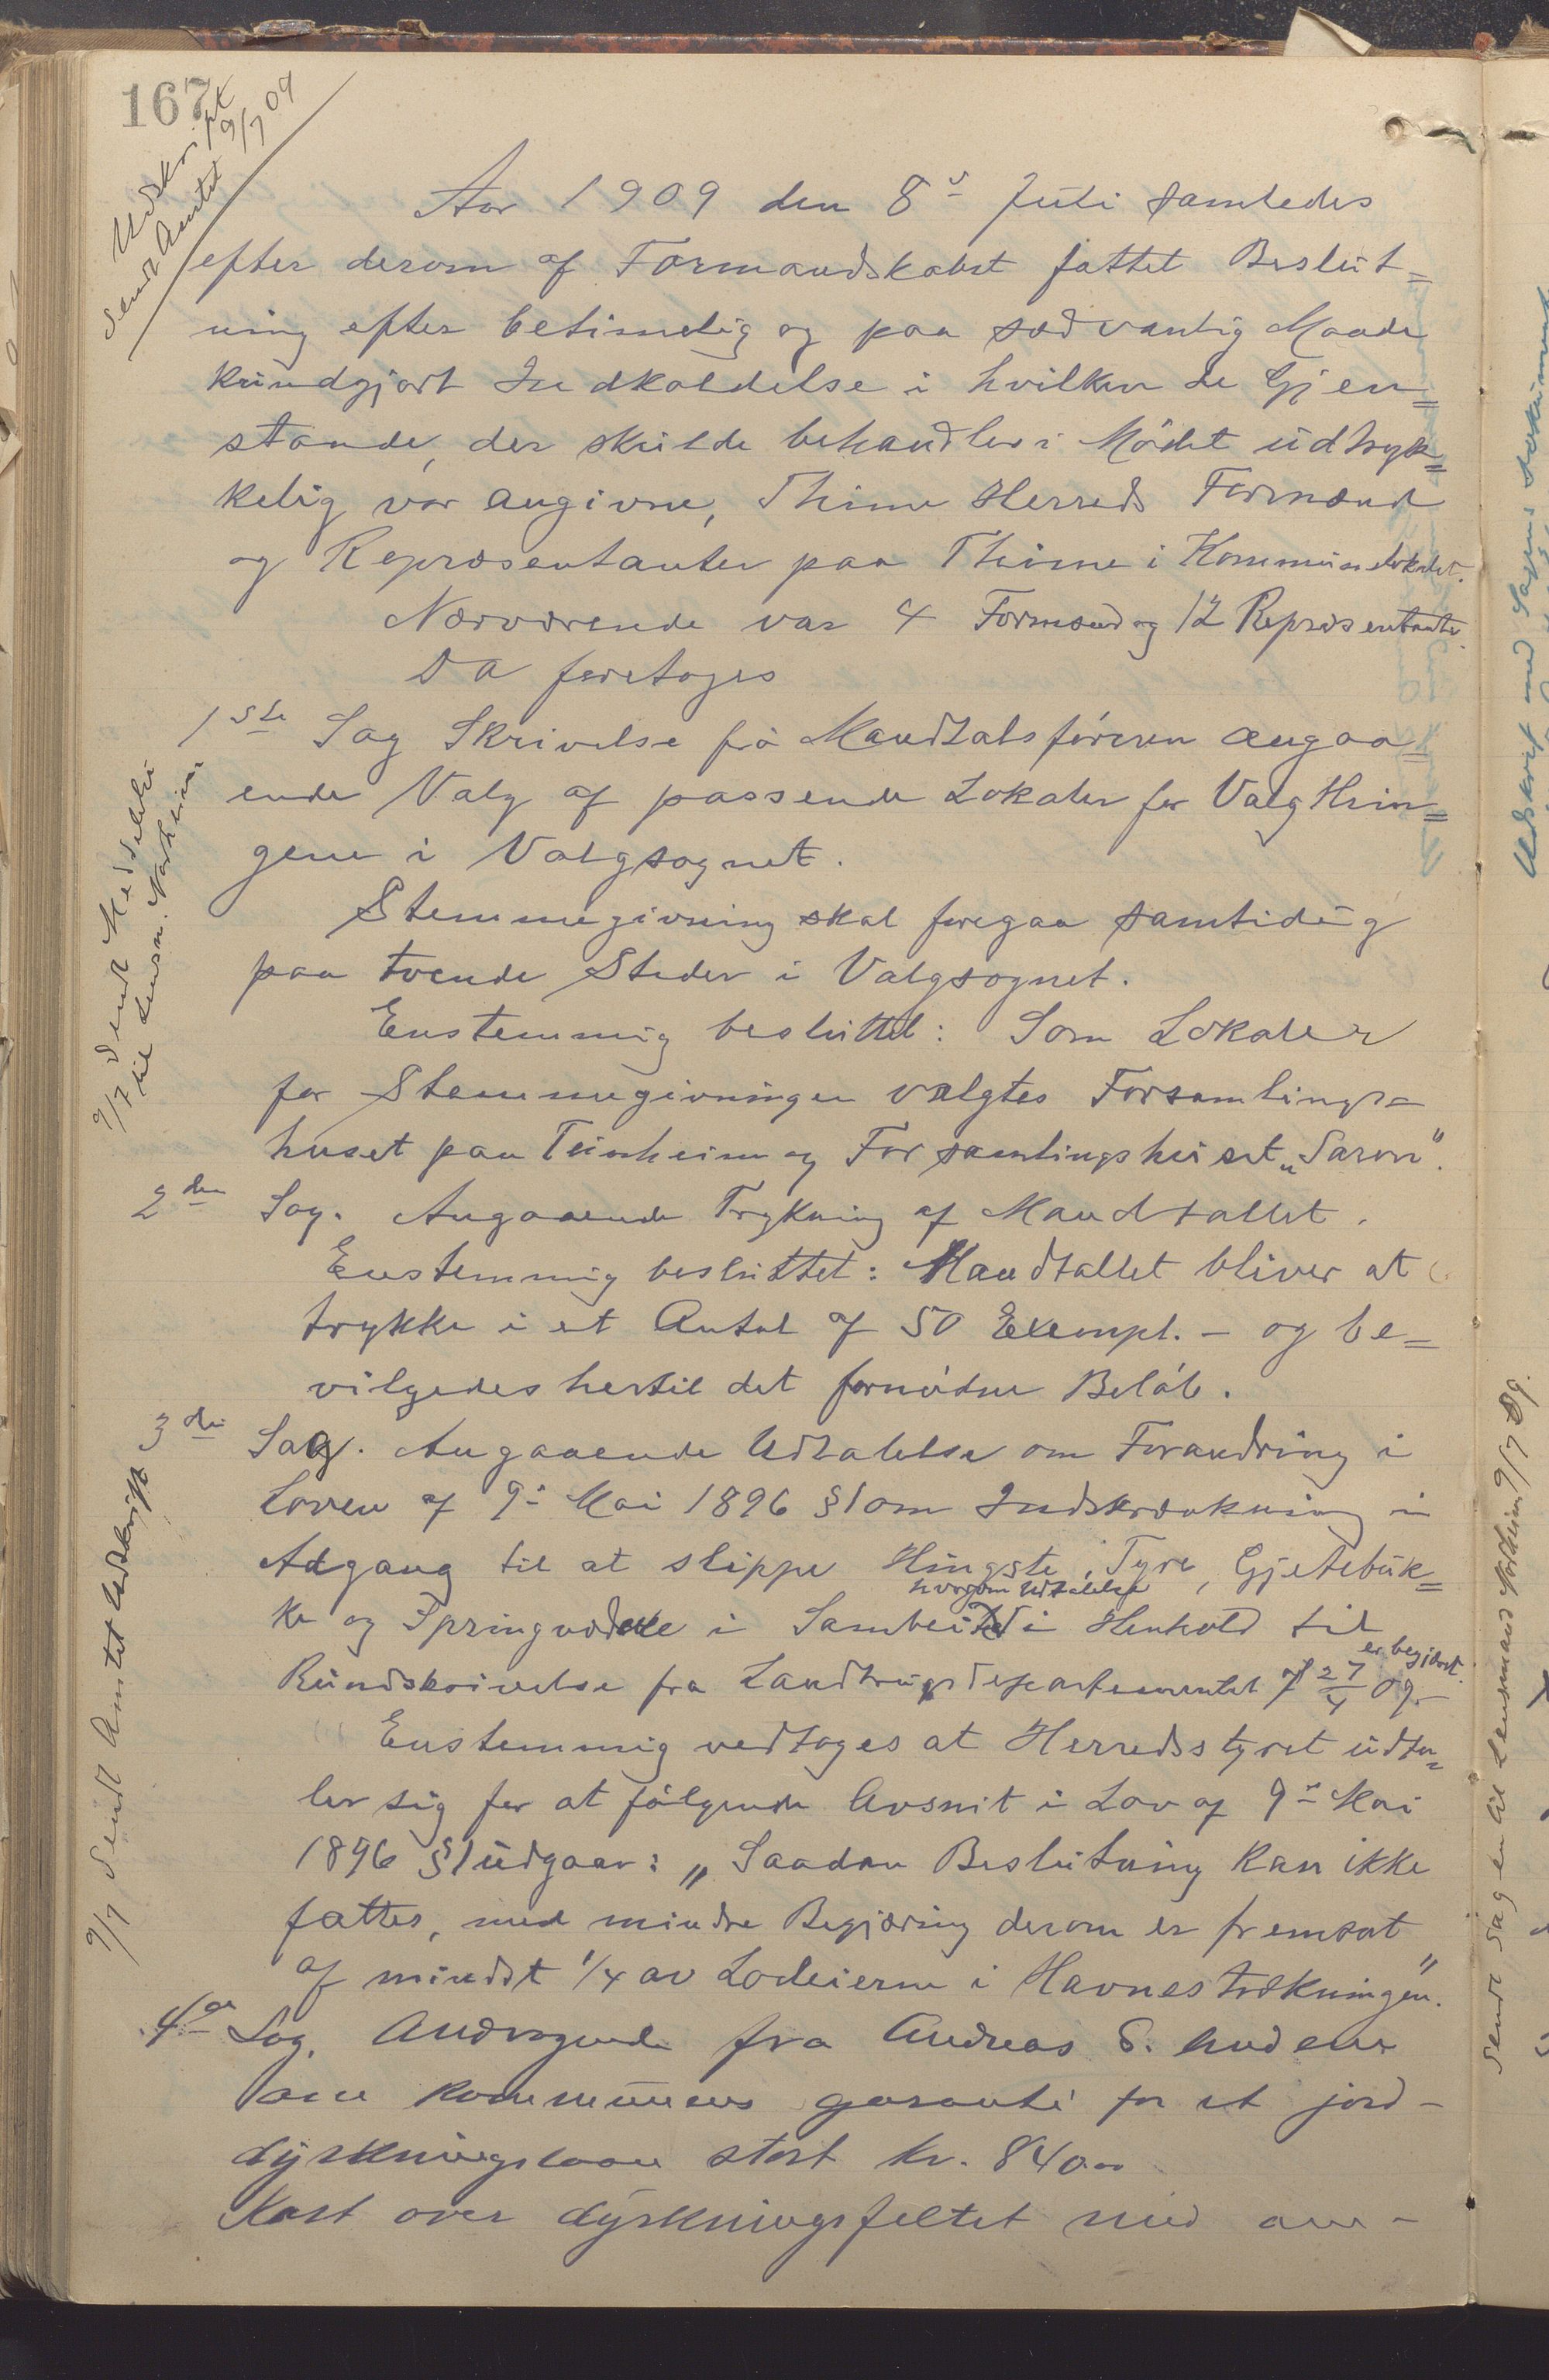 167
Udskript
sendt Amtet 9/7 09
Aar 1909 den 8de Juli samledes
efter derom af Formandskabet fattet Beslut=
ning efter betimelig og paa sædvanlig Maade
kundgjort Indkaldelse i hvilken de Gjen=
stande, der skulde behandles i Mødet udtryk=
kelig var angivne, Thime Herreds Formænd
og Repræsentanter paa Thime i Kommunelokalet.
Nærværende var 4 Formænd og 12 Repræsentanter.
Da foretoges
1ste Sag Skrivelse frå Mandtalsføreren angaa=
ende Valg af passende Lokaler for Valgthin=
gene i Valgsognet.
Stemmegivning skal foregaa samtidig
paa tvende Steder i Valgsognet.
Enstemmig besluttet: Som Lokaler
for Stemmegivningen valgtes Forsamlings=
huset paa Tunheim og Forsamlingshuset „Saron".
9/7 Sendt Meddelelse
til Lensm. Norheim
2den Sag. Angaaende Trykning af Mandtallet.
Enstemmig besluttet: Mandtallet bliver at
trykke i et Antal af 50 Exempl. – og be=
vilgedes hertil det fornødne Beløb.
3die Sag. Angaaende Udtalelse om Forandring i
Loven af 9de Mai 1896 §1 om Indskrænkning i
Adgang til at slippe Hingste, Tyre, Gjetebuk=
ke og Springvædere i Sambeite i Henhold til
hvorom Udtalelse
er begjært.
Rundskrivelse fra Landbrugsdepartementet af 27/4 09.–
Enstemmig vedtoges at Herredsstyret udta=
ler sig for at følgende Avsnit i Lov af 9de Mai
1896 §1 udgaar: „Saadan Beslutning kan ikke
fattes, med mindre Begjæring derom er fremsat
af mindst 1/4 av Lodeierne i Havnestrækningen".
9/7 Sendt Amtet Udskrift
4de Sag. Andragende fra Andreas S.
om kommunens garanti for et jord-
dyrkningslaan stort kr. 840.00
Kart over dyrkningsfeltet med an-
Sendt Sag en til Lensmand Norheim 9/7 09.